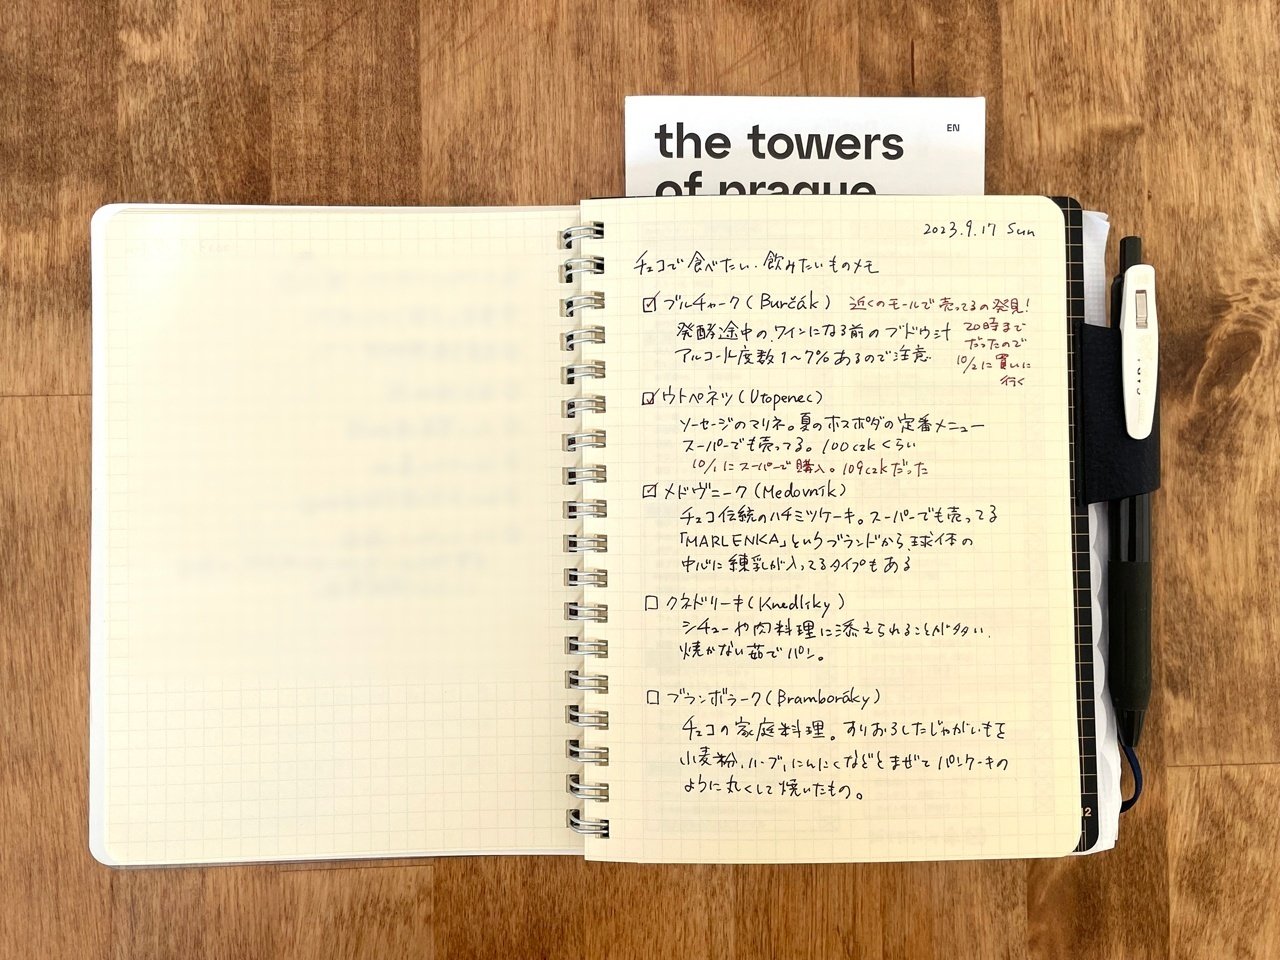 the towers
EN
of prague
2023.9.17 Sun
チェコで食べたい・飲みたいものメモ
☑ ブルチャーク(Burčák) 近くのモールで売ってるの発見!
発酵途中のワインになる前のブドウ汁 20時まで
だったので
アルコール度数1〜7%あるので注意
10/2に買いに
行く
☑ ウトペネツ(Utopenec)
ソーセージのマリネ。夏のホスポダの定番メニュー
スーパーでも売ってる。100czkくらい
10/1にスーパーで購入。109czkだった
☑ メドヴニーク(Medovník)
チェコ伝統のハチミツケーキ。スーパーでも売ってる
「MARLENKA」というブランドから球体の
中心に練乳が入ってるタイプもある
☐ クネドリーキ(Knedlíky)
シチューや肉料理に添えられることが多い、
焼かない茹でパン。
☐ ブランボラーク(Bramboráky)
チェコの家庭料理。すりおろしたじゃがいもを
小麦粉、ハーブ、にんにくなどとまぜてパンケーキの
ように丸くして焼いたもの。
12